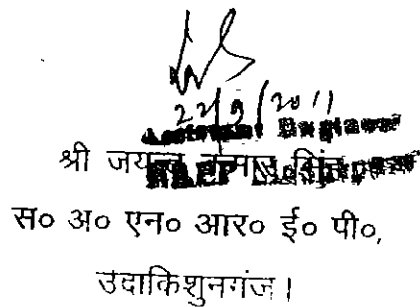 22/9/2011
Assistant Engineer
श्री जयन्त कुमार सिंह
NREP
स० अ० एन० आर० ई० पी०,
उदाकिशुनगंज।